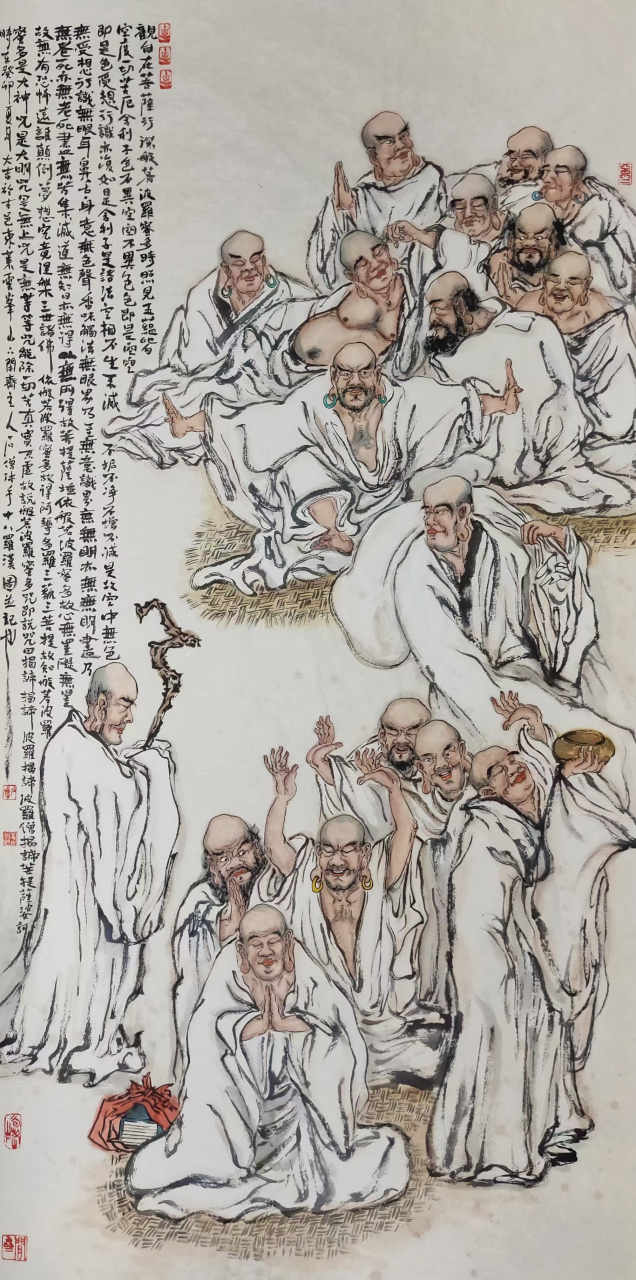 觀自在菩薩行深般若波羅蜜多時照見五蘊皆
空度一切苦厄舍利子色不異空空不異色色即是空空
即是色受想行識亦復如是舍利子是諸法空相不生不滅不垢不淨不增不減是故空中無色
無受想行識無眼耳鼻舌身意無色聲香味觸法無眼界乃至無意識界無無明亦無無明盡乃
無老死亦無老死盡無苦集滅道無智亦無得以無所得故菩提薩埵依般若波羅蜜多故心無罣礙無罣
故無有恐怖遠離顛倒夢想究竟涅槃三世諸佛依般若波羅蜜多故得阿耨多羅三藐三菩提故知般若波羅
蜜多是大神咒是大明咒是無上咒是無等等咒能除一切苦真實不虛故說般若波羅蜜多咒即說咒曰揭諦揭諦波羅揭諦波羅僧揭諦菩提薩婆訶
時在癸卯夏月大吉於古邑東萊雲峯山下閑齋主人石僧沐手十八羅漢圖並記